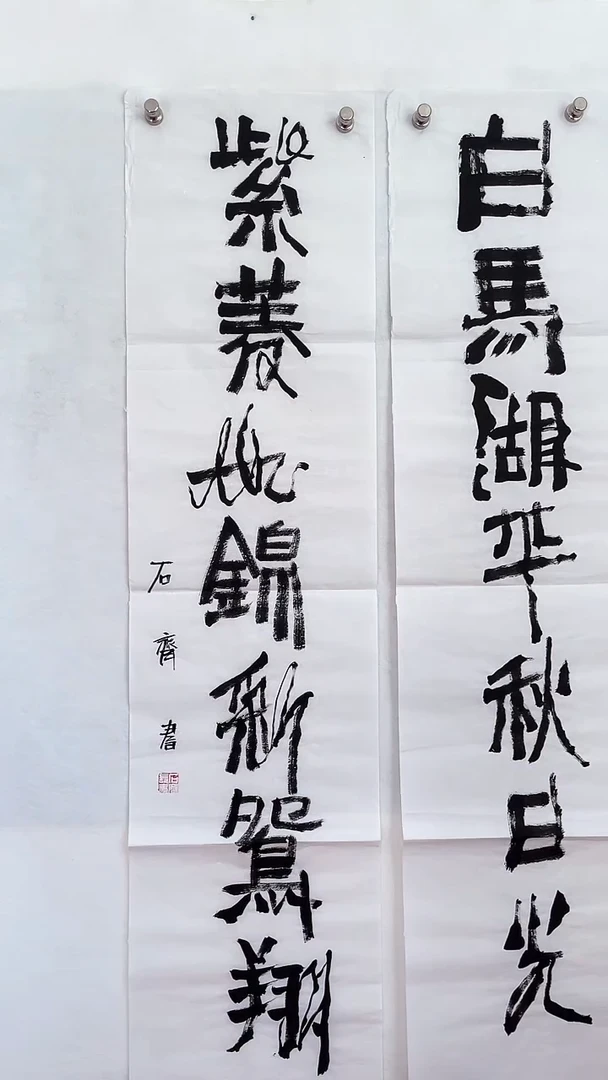 白馬湖平秋日光
紫菱如錦彩鴛翔
石齊書